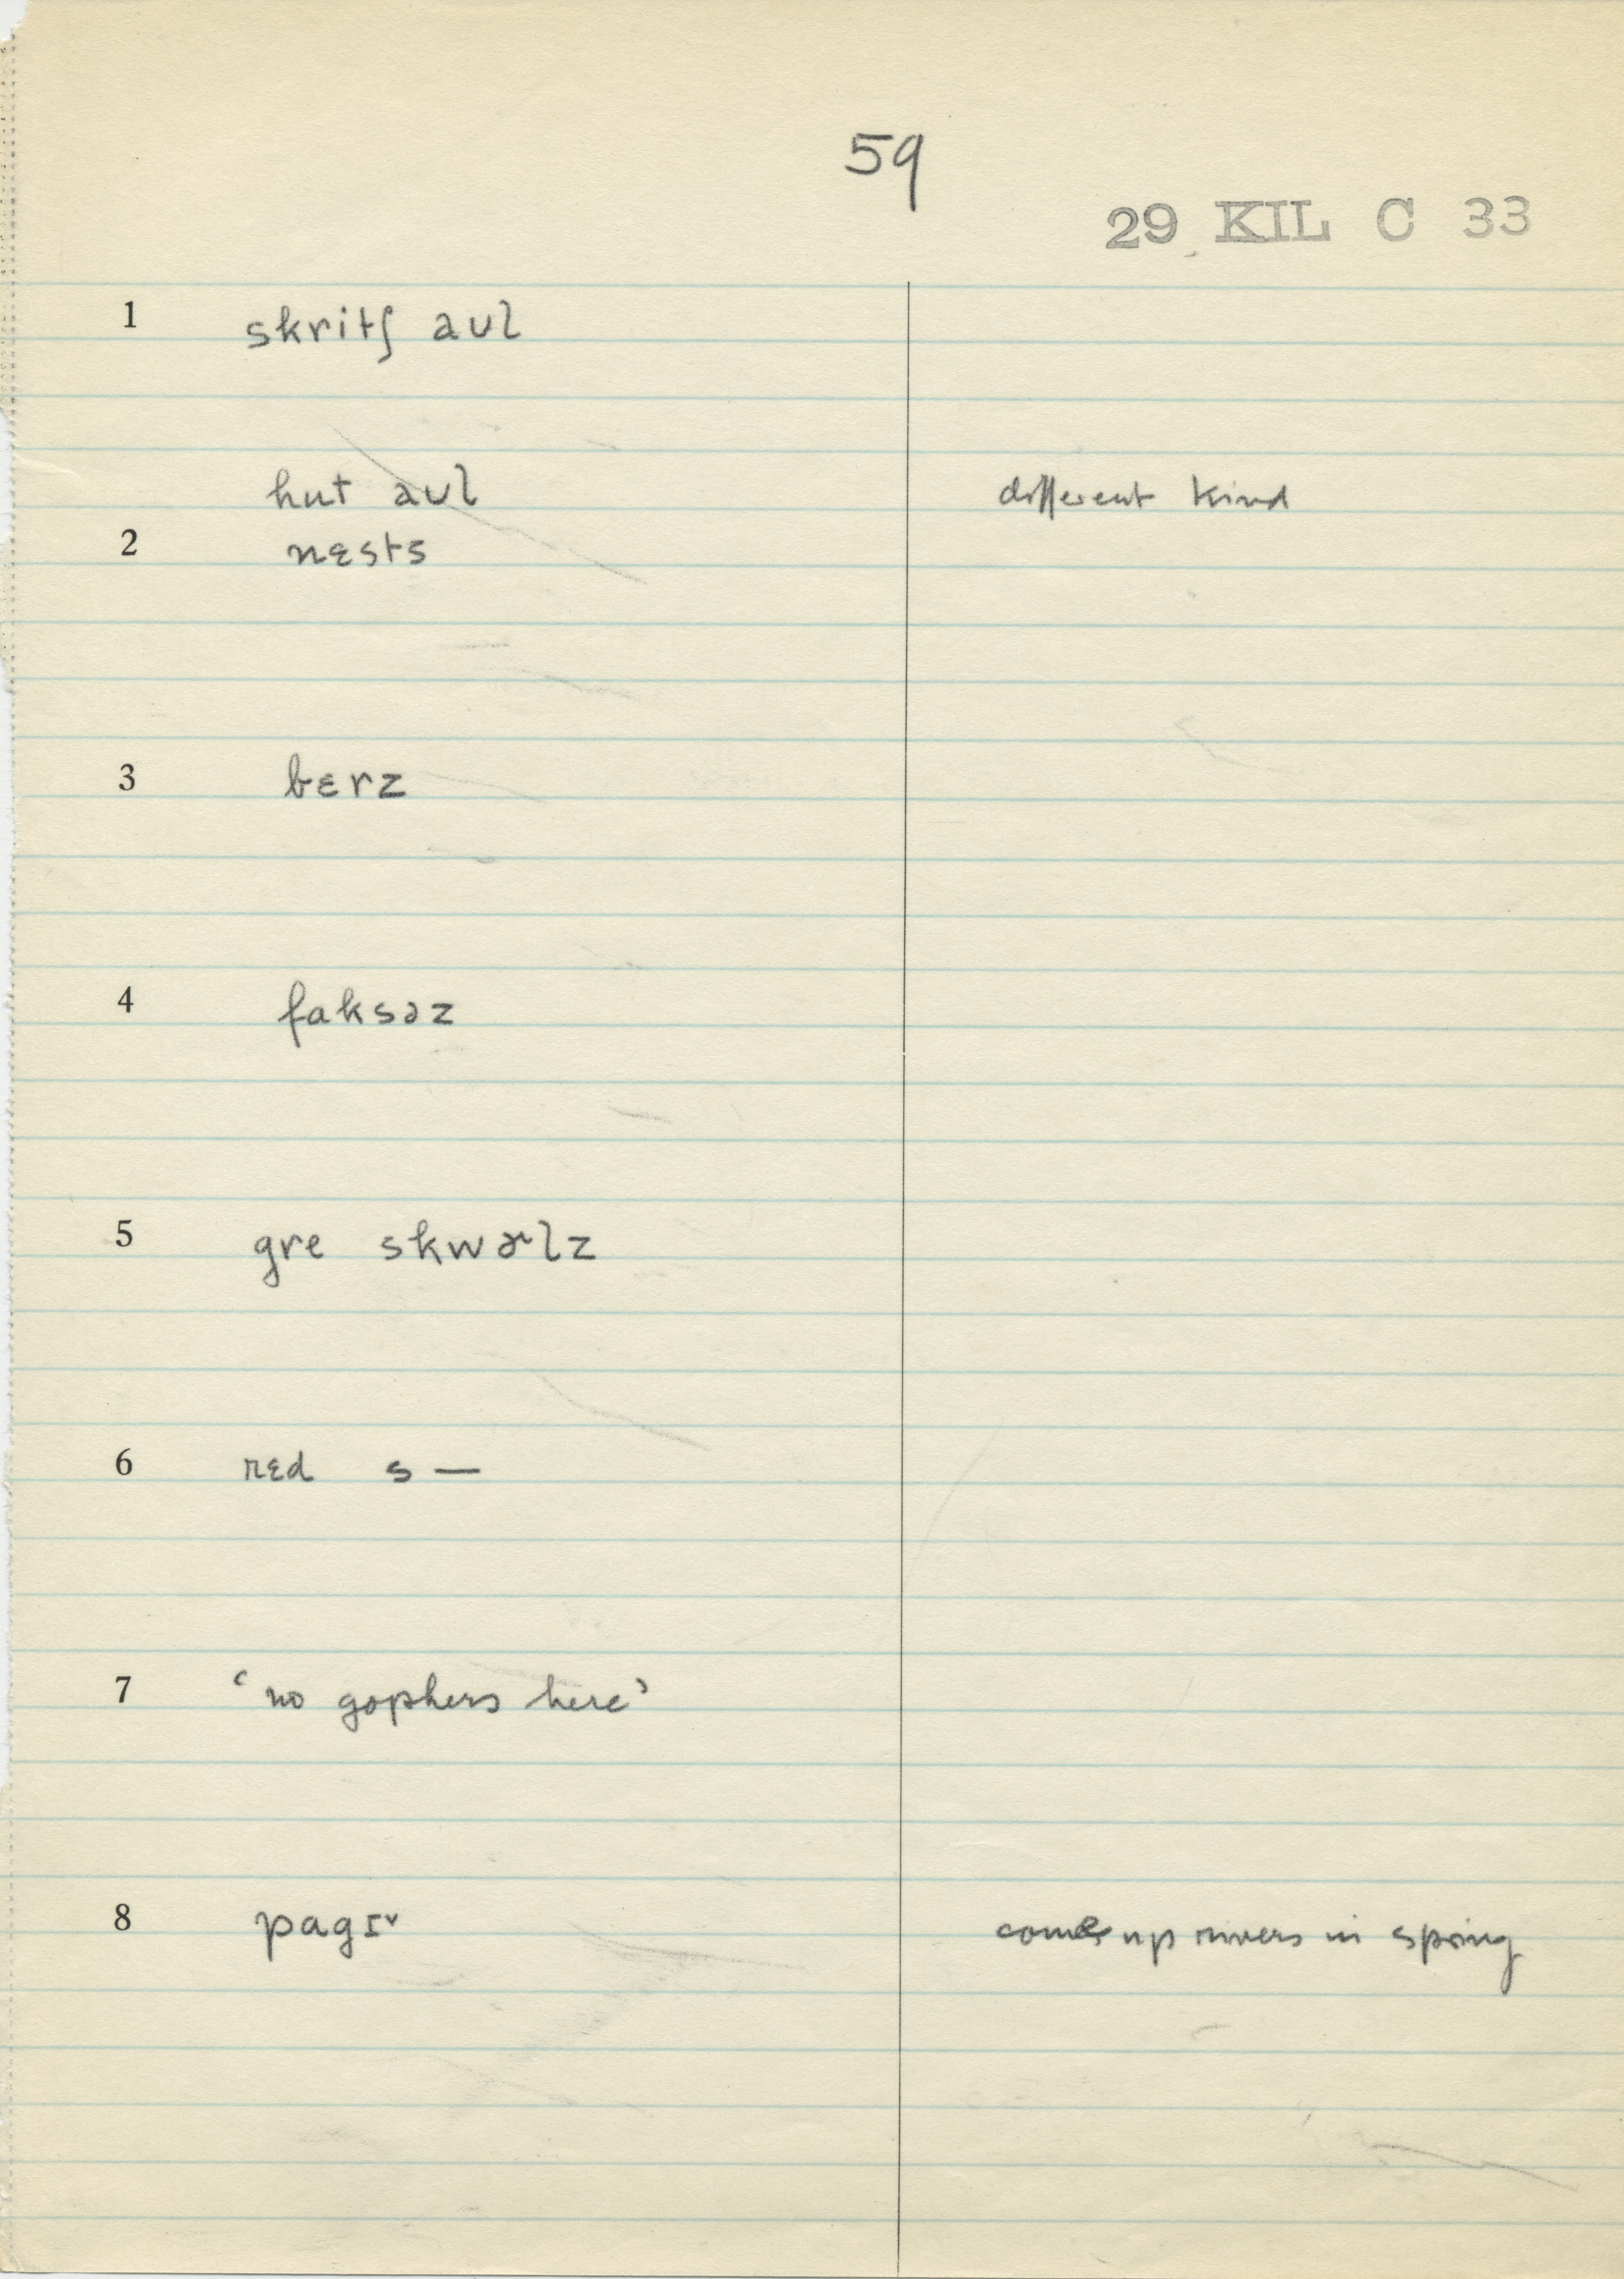 59
29 KIL C 33
1 skritʃ aʊl
hut aʊl different kind
2 nɛsts
3 bɛrz
4 faksəz
5 gre skwɚlz
6 rɛd s—
7 ‘no gophers here’
8 pagɪ˅ comes up rivers in spring